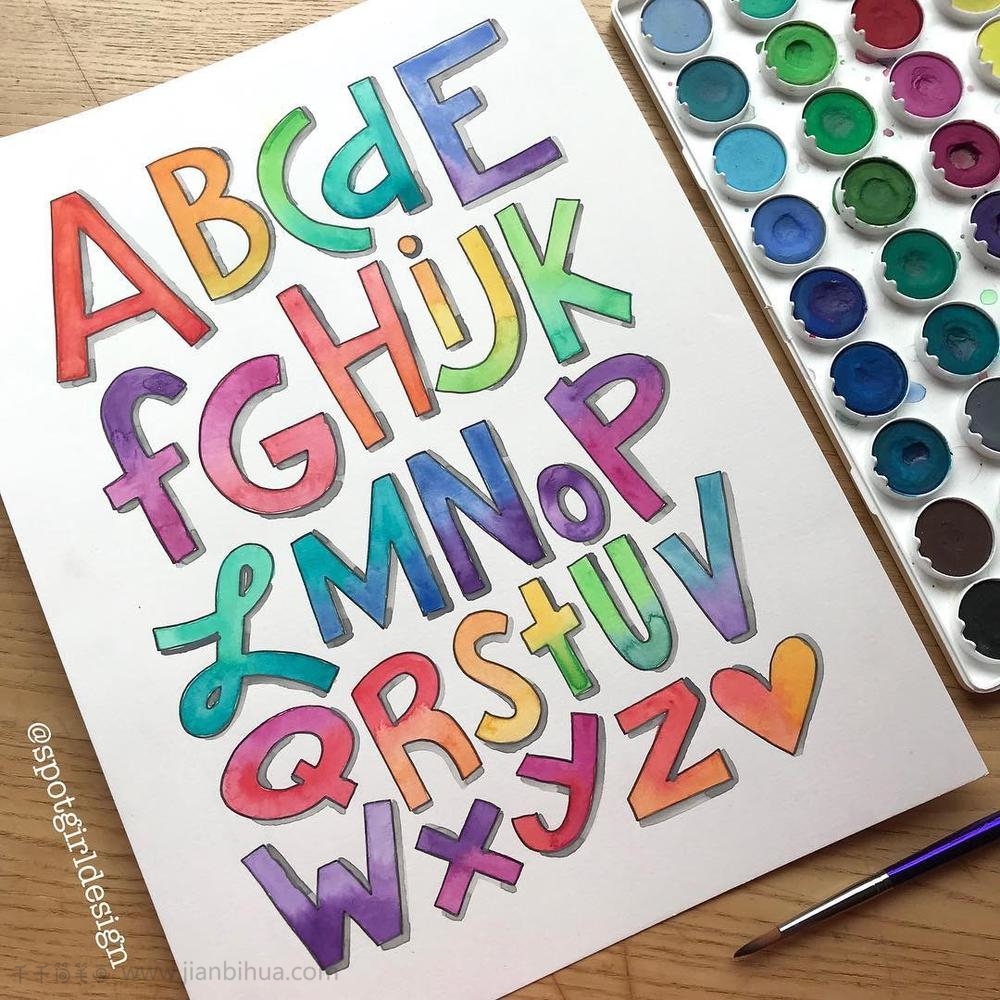 ABCdE
fGHiJK
LMNoP
QRStUV
WxyZ
@spotgirldesign
www.jianbihua.com